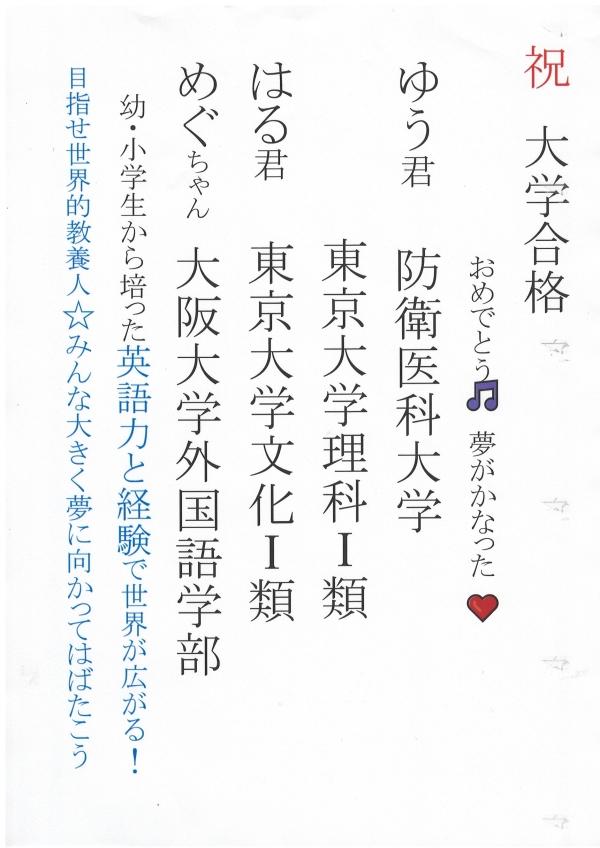 祝 大学合格
おめでとう🎵 夢がかなった❤
ゆう君 防衛医科大学
東京大学理科Ⅰ類
はる君 東京大学文化Ⅰ類
めぐちゃん 大阪大学外国語学部
幼・小学生から培った英語力と経験で世界が広がる！
目指せ世界的教養人☆みんな大きく夢に向かってはばたこう